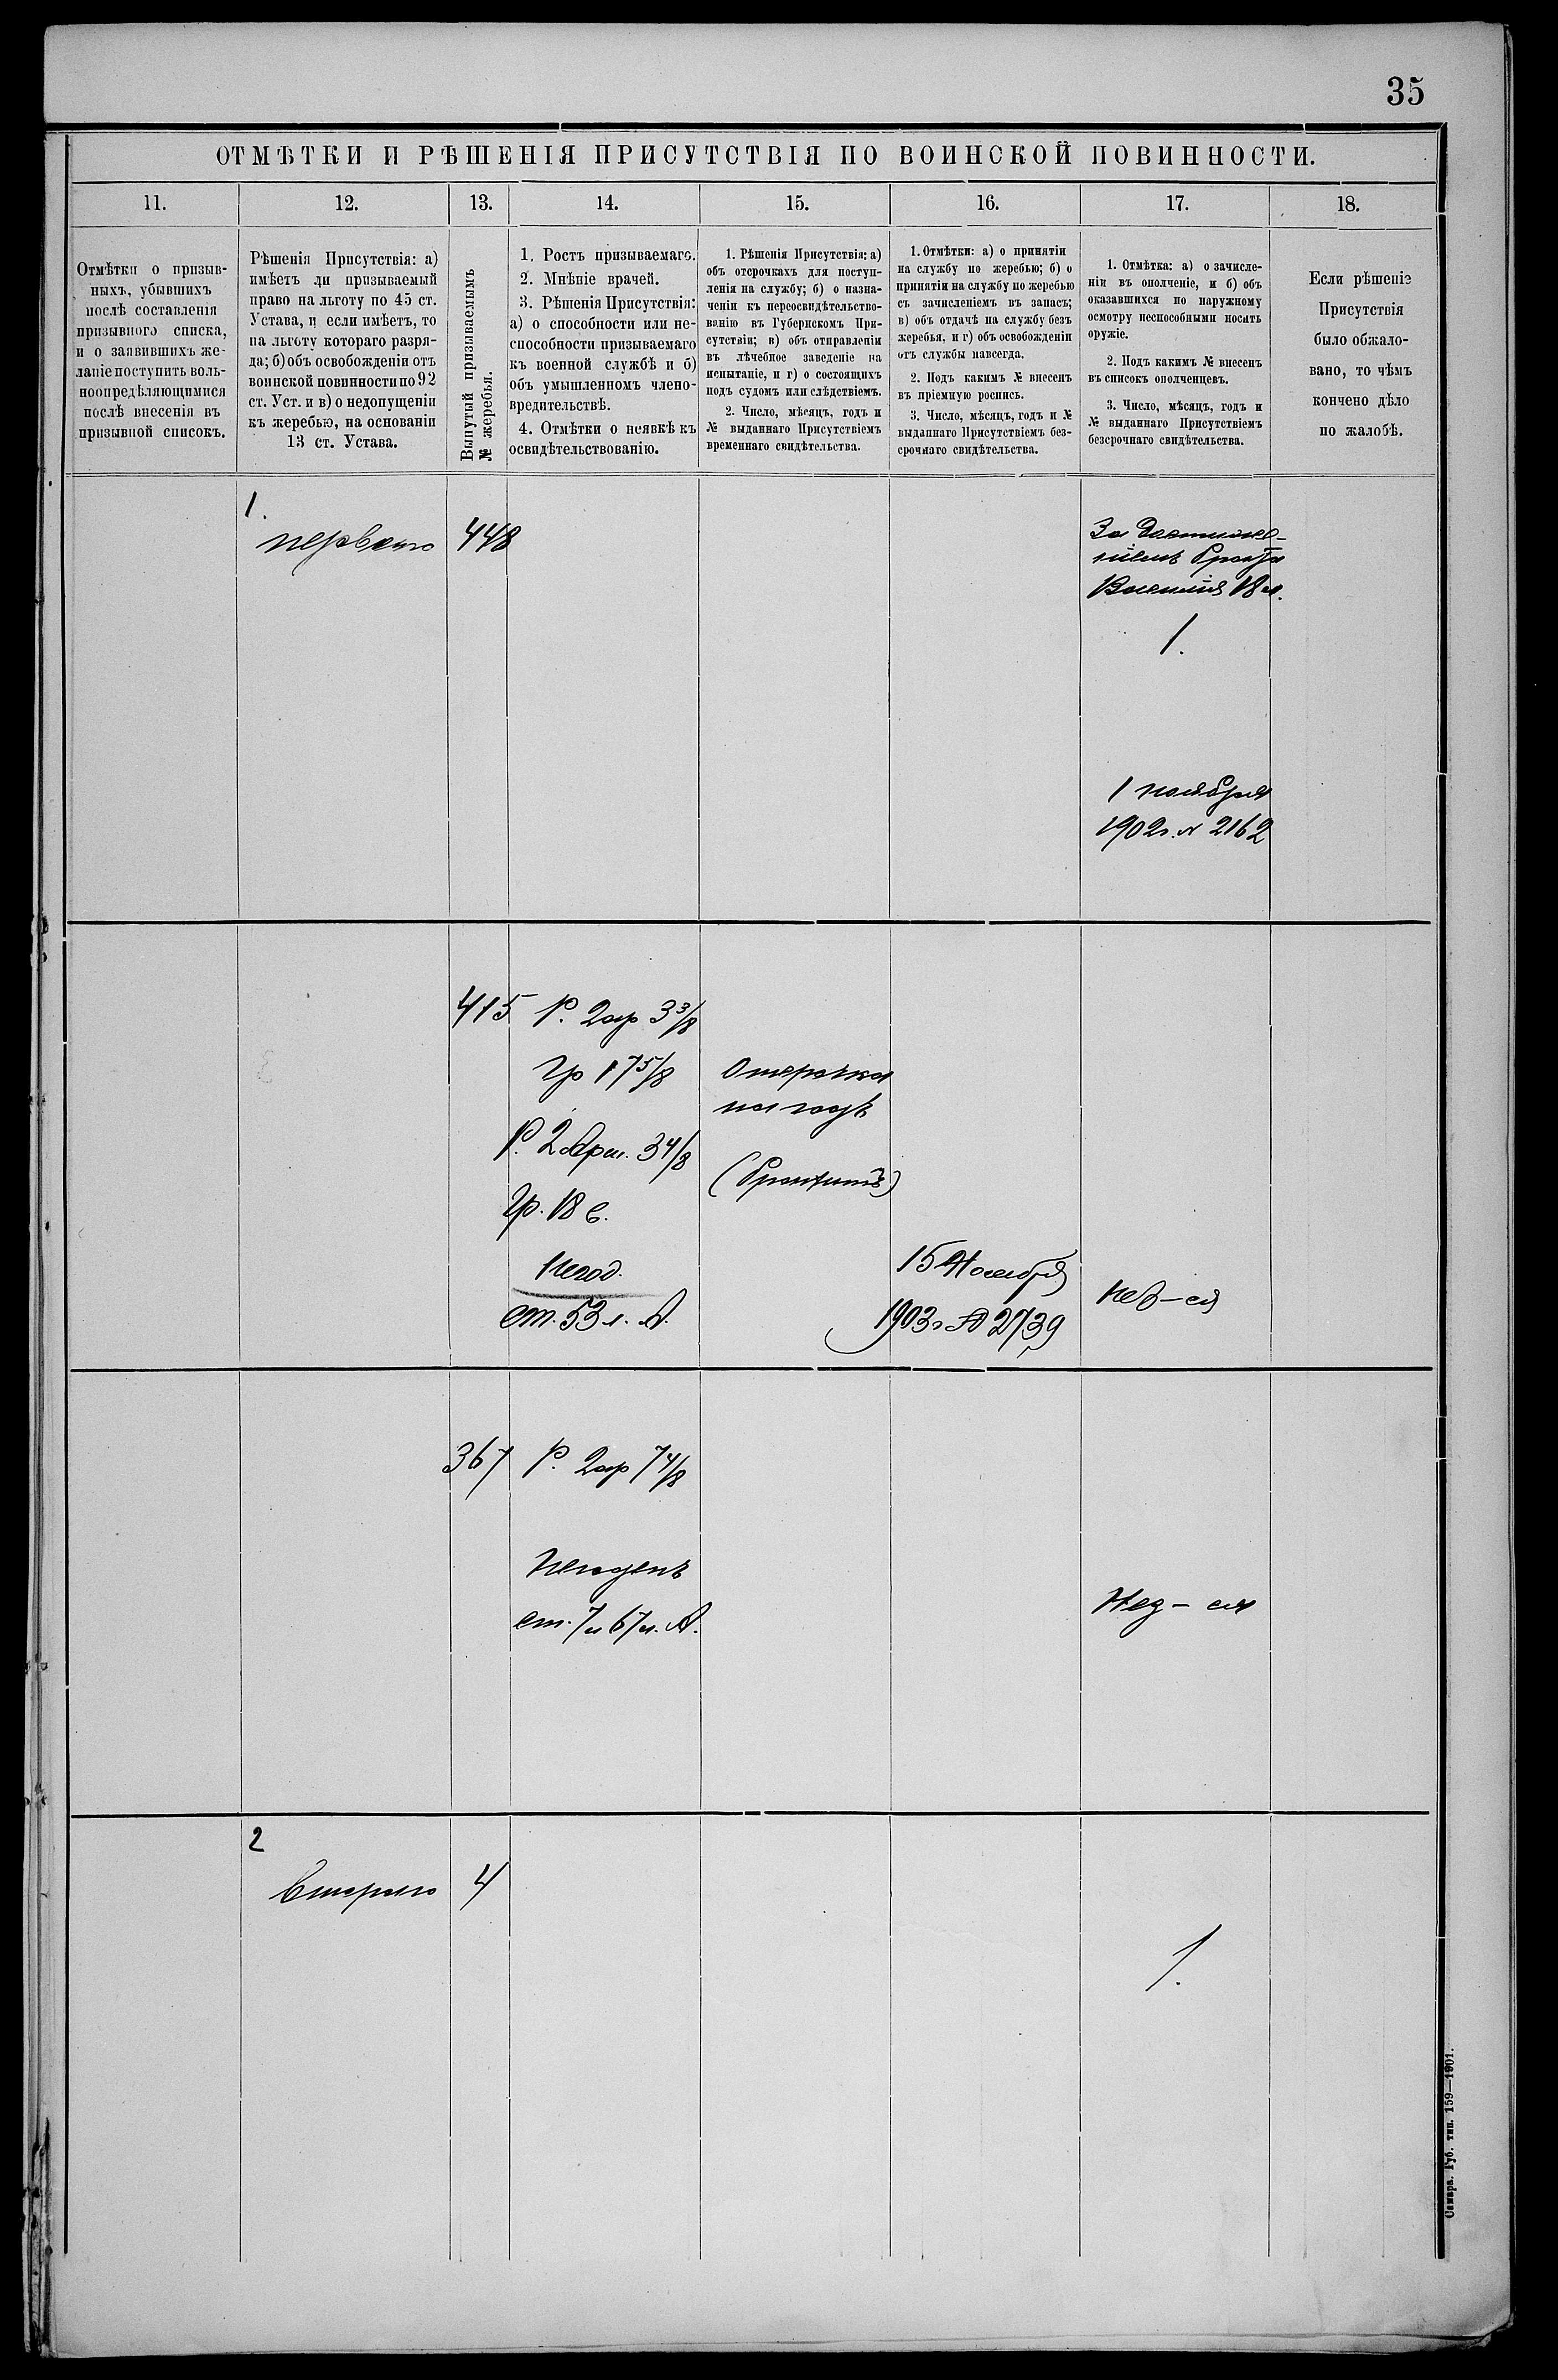 35
ОТМѢТКИ И РѢШЕНІЯ ПРИСУТСТВІЯ ПО ВОИНСКОЙ ПОВИННОСТИ.
11.
12.
13.
14.
15.
16.
17.
18.
Отмѣтки о призыв-
ныхъ, убывшихъ
послѣ составленія
призывного списка,
и о заявившихъ же-
ланіе поступить воль-
ноопредѣляющимися
послѣ внесенія въ
призывной списокъ.
Рѣшенія Присутствія: а)
имѣетъ ли призываемый
право на льготу по 45 ст.
Устава, и если имѣетъ, то
на льготу котораго разря-
да; б) объ освобожденіи отъ
воинской повинности по 92
ст. Уст. и в) о недопущеніи
къ жеребью, на основаніи
13 ст. Устава.
Вынутый призываемымъ
№ жеребья.
1. Ростъ призываемаго.
2. Мнѣніе врачей.
3. Рѣшенія Присутствія:
а) о способности или не-
способности призываемаго
къ военной службѣ и б)
объ умышленномъ члено-
вредительствѣ.
4. Отмѣтки о неявкѣ къ
освидѣтельствованію.
1. Рѣшенія Присутствія: а)
объ отсрочкахъ для поступ-
ленія на службу; б) о назна-
ченіи къ переосвидѣтельство-
ванію въ Губернскомъ При-
сутствіи; в) объ отправленіи
въ лѣчебное заведеніе на
испытаніе, и г) о состоящихъ
подъ судомъ или слѣдствіемъ.
2. Число, мѣсяцъ, годъ и
№ выданнаго Присутствіемъ
временнаго свидѣтельства.
1. Отмѣтки: а) о принятіи
на службу по жеребью; б) о
принятіи на службу по жеребью
съ зачисленіемъ въ запасъ;
в) объ отдачѣ на службу безъ
жеребья, и г) объ освобожденіи
отъ службы навсегда.
2. Подъ какимъ № внесенъ
въ пріемную роспись.
3. Число, мѣсяцъ, годъ и №
выданнаго Присутствіемъ без-
срочнаго свидѣтельства.
1. Отмѣтка: а) о зачисле-
ніи въ ополченіе, и б) объ
оказавшихся по наружному
осмотру неспособными носить
оружіе.
2. Подъ какимъ № внесенъ
въ списокъ ополченцевъ.
3. Число, мѣсяцъ, годъ и
№ выданнаго Присутствіемъ
безсрочнаго свидѣтельства.
Если рѣшеніе
Присутствія
было обжало-
вано, то чѣмъ
кончено дѣло
по жалобѣ.
1.
перваго
448
За достиже-
ніемъ брата
Василія 18 л.
1.
1 ноября
1902 г. № 2162
415
Р. 2 ар 3 3/8
Гр 17 5/8
Р. 2 Арш. 3 4/8
Гр. 18 в.
Негод.
ст. 53 л. А.
Отсрочка
на годъ
(бронхитъ)
15 Ноября
1903 г № 2739
Нев-ся
367
Р. 2 ар 7 4/8
Негоденъ
ст. 7 и 67 л. А.
Нез-ся
2
Втораго
4
1.
Самара. Губ. тип. 159—1901.